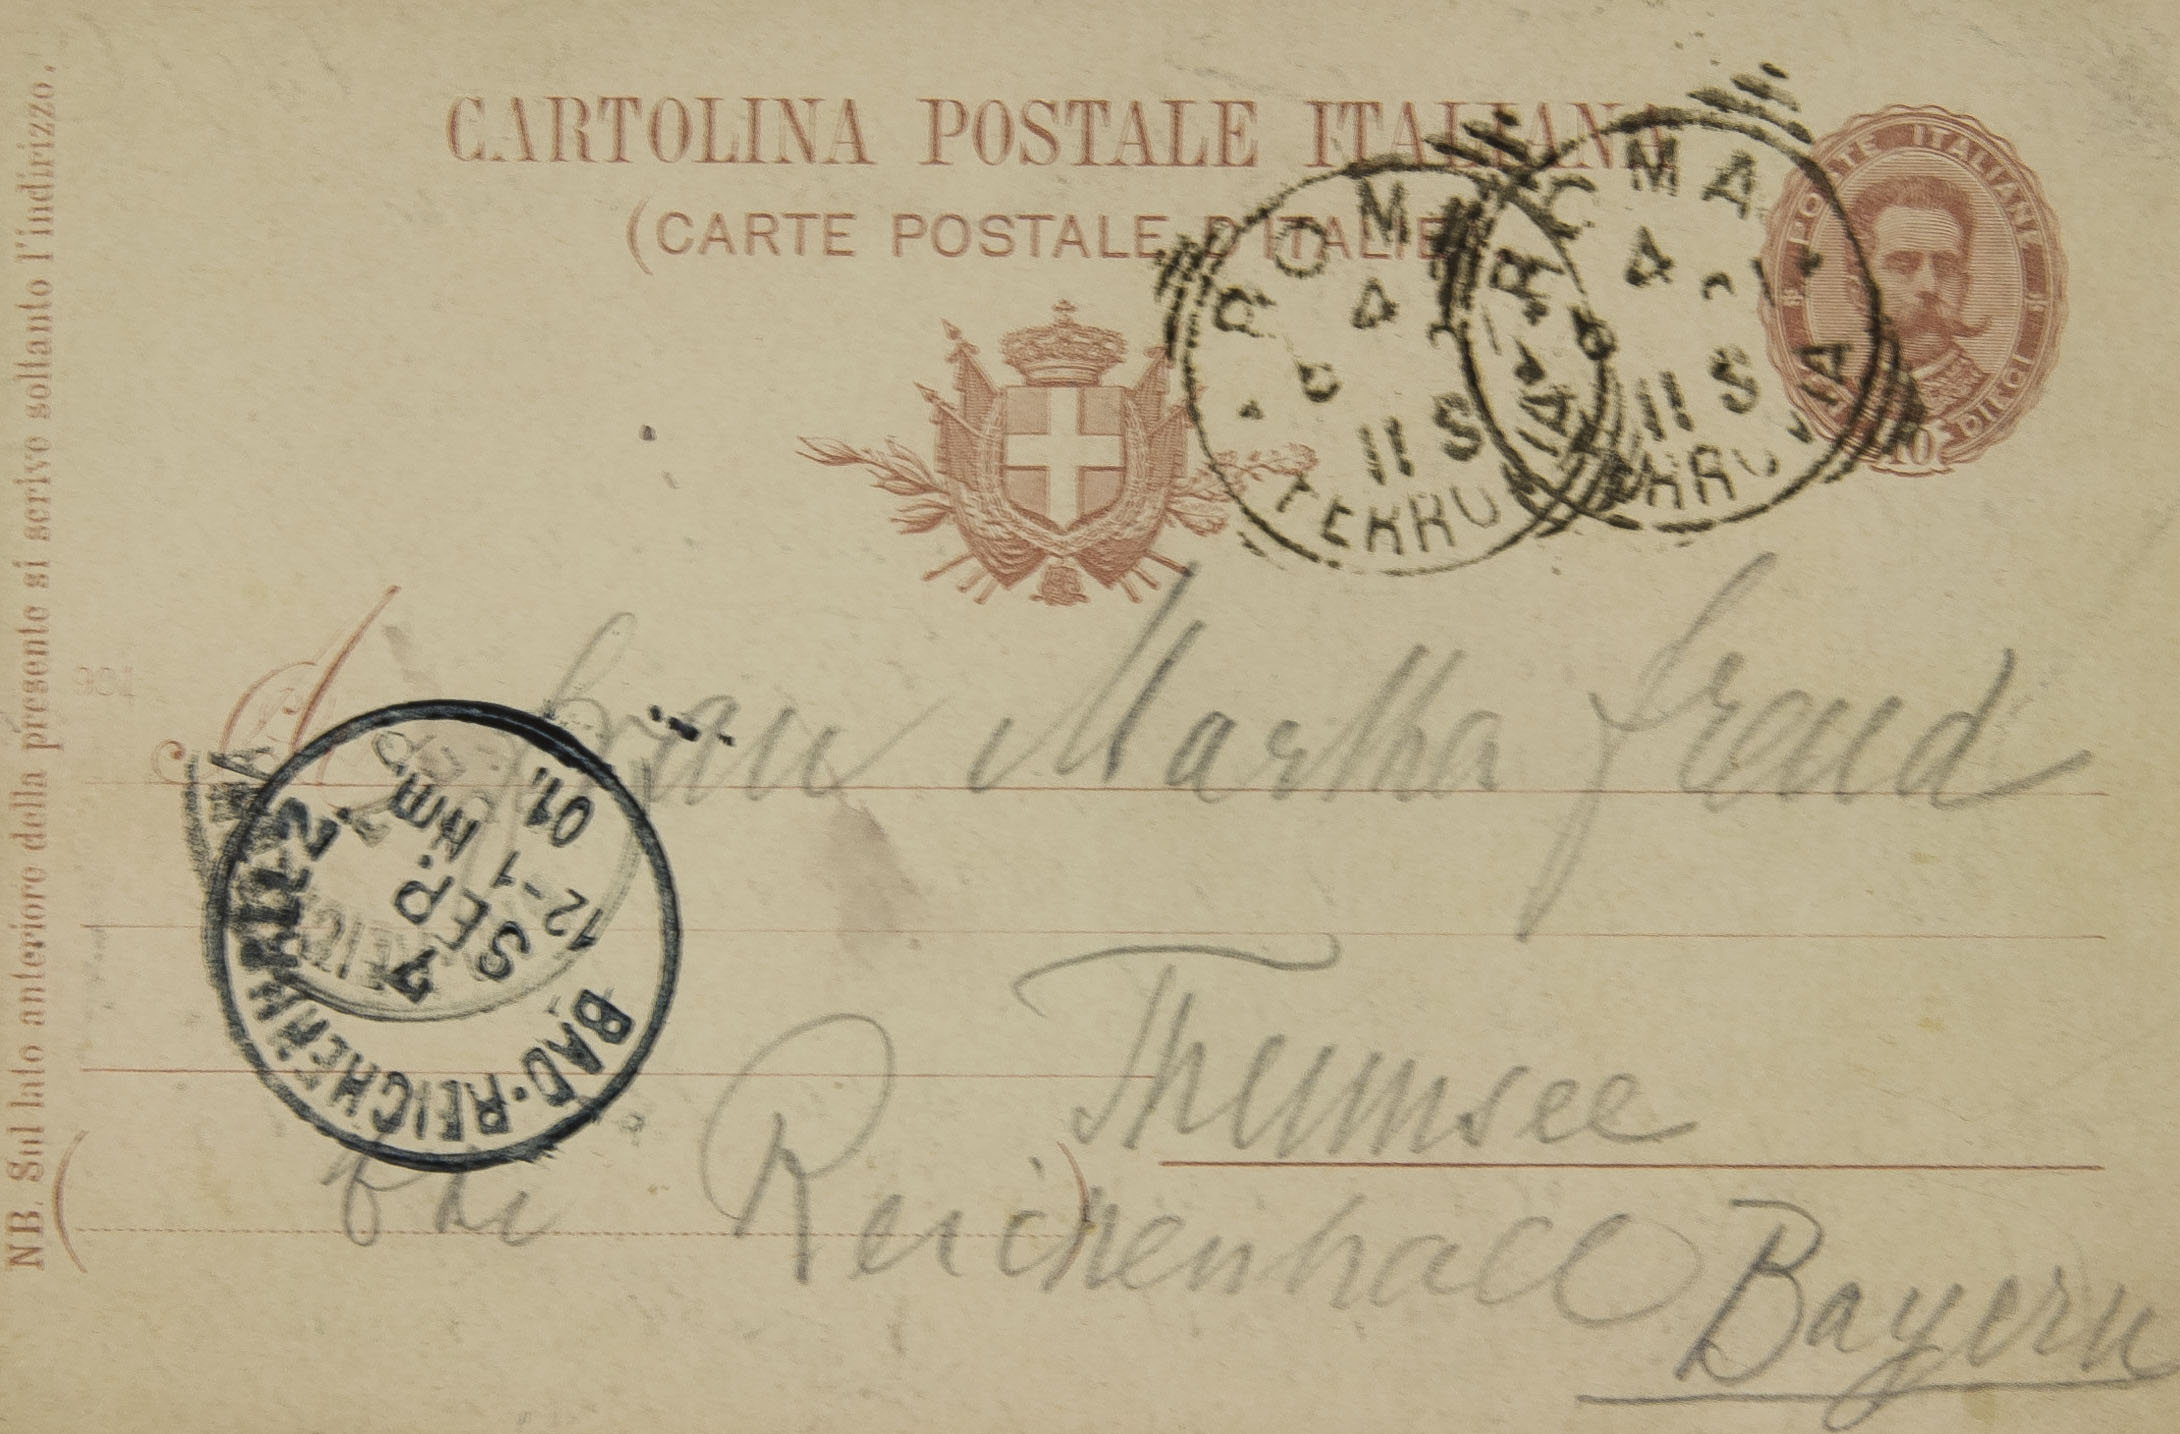 CARTOLINA POSTALE ITALIANA
(CARTE POSTALE D'ITALIE)
POSTE ITALIANE
DIECI
10
ROMA
4
11 S
FERROVIA
ROMA
4
11 S
FERROVIA
NB. Sul lato anteriore della presente si scrive soltanto l'indirizzo.
A
Frau Martha Freud
Thumsee
bei Reichenhall
Bayern
BAD-REICHENHALL 2
7
SEP.
12-1 Nm.
01.